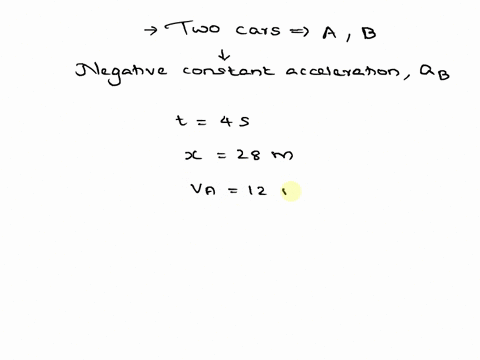 → Two cars ⇒ A, B
↓
Negative constant acceleration, aB
t = 4 s
x = 28 m
VA = 12